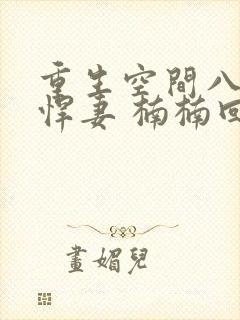 重生空間八
悍妻 楠楠回
畫媚兒